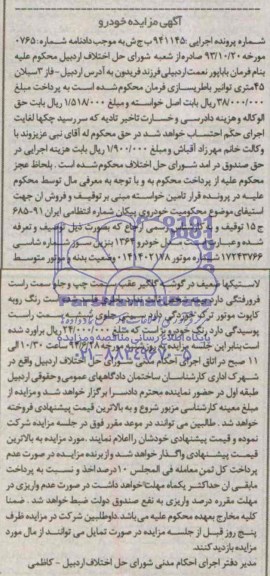 آگهی مزایده خودرو
شماره پرونده اجرایی :۹۴۱۱۴۵ ب ج ش به موجب دادنامه شماره :۰۷۶۵
مورخه ۹۳/۱۰/۲۰ صادره از شعبه شورای حل اختلاف اردبیل محکوم علیه
بنام فرمان باباپور نعمت اردبیلی فرزند فریدون به آدرس اردبیل- فاز ۳ سبلان
۴۵ متری توانیر باطرسازی فرمان محکوم شده است به پرداخت مبلغ
۳۸/۰۰۰/۰۰۰ ریال بابت اصل خواسته و مبلغ ۱/۵۱۸/۰۰۰ ریال بابت حق
الوکاله و هزینه دادرسی و خسارت تاخیر تادیه که سررسید چکها لغایت
اجرای حکم احتساب خواهد شد در حق محکوم له آقای نبی عزیزوند با
وکالت خانم مهرزاد آقباش و مبلغ ۱/۹۰۰/۰۰۰ ریال بابت هزینه اجرایی در
حق صندوق در آمد شورای حل اختلاف محکوم شده است . بلحاظ عجز
محکوم علیه از پرداخت محکوم به و با توجه به معرفی مال توسط محکوم
علیه در پرونده قرار تامین خواسته مبنی بر توقیف و فروش آن جهت
استیفای موضوع محکومیت خودروی پیکان شماره انتظامی ایران ۹۱-۶۸۵
ج ۱۵ توقیف و رسمی ارجاع که بصورت ذیل توصیف و تعرفه
شده و عبارت مدل خودرو ۱۳۶۴ بنزین سوز شماره شاسی
۱۷۲۴۳۷۶۶ موتور ۰۱۴۱۴۰۲۱۷۸ وضعیت بدنه و موتور متوسط
لاستیکها ضعیف در گوشه گلگیر عقب سمت چپ و جلو سمت راست
فرورفتگی دارد راست رنگ رویه
کاپوت موتور ترک خوردگی دارد سمت راست
پوسیدگی دارد رنگ خودرو ۲۴/۰۰۰/۰۰۰ ریال برآورد شده
است بنابر این جلسه مزایده ۹۴/۶/۲۸ ساعت ۱۰/۳۰ الی
۱۱ صبح در اتاق اجرای احکام حل اختلاف اردبیل واقع در
شهرک اداری کارشناسان ساختمان دادگاههای عمومی و حقوقی اردبیل
طبقه اول در حضور نماینده محترم دادسرا برگزار خواهد شد و مزایده از
مبلغ معینه کارشناسی مزبور شروع و به بالاترین قیمت پیشنهادی فروخته
خواهد شد . طالبین می توانند در موعد مقرر فوق در جلسه مزایده شرکت
نموده و قیمت پیشنهادی خودشان را اعلام نمایند .مورد مزایده به بالاترین
قیمت پیشنهادی واگذار خواهد شد و از برنده مزایده در صورت عدم
پرداخت کل ثمن معامله فی المجلس ۱۰ درصد اخذ و نسبت به پرداخت
مابقی آن حداکثر یکماه مهلت خواهد داشت در صورت عدم واریزی در
مهلت مقرره درصد واریزی به نفع صندوق دولت ضبط خواهد شد . ضمنا
کلیه مخارج بعهده محکوم علیه می باشد داوطلبین شرکت در مزایده ظرف
پنج روز قبل از جلسه مزایده در صورت تمایل می توانند از مال مورد
مزایده بازدید کنند.
مدیر دفتر اجرای احکام مدنی شورای حل اختلاف اردبیل - کاظمی